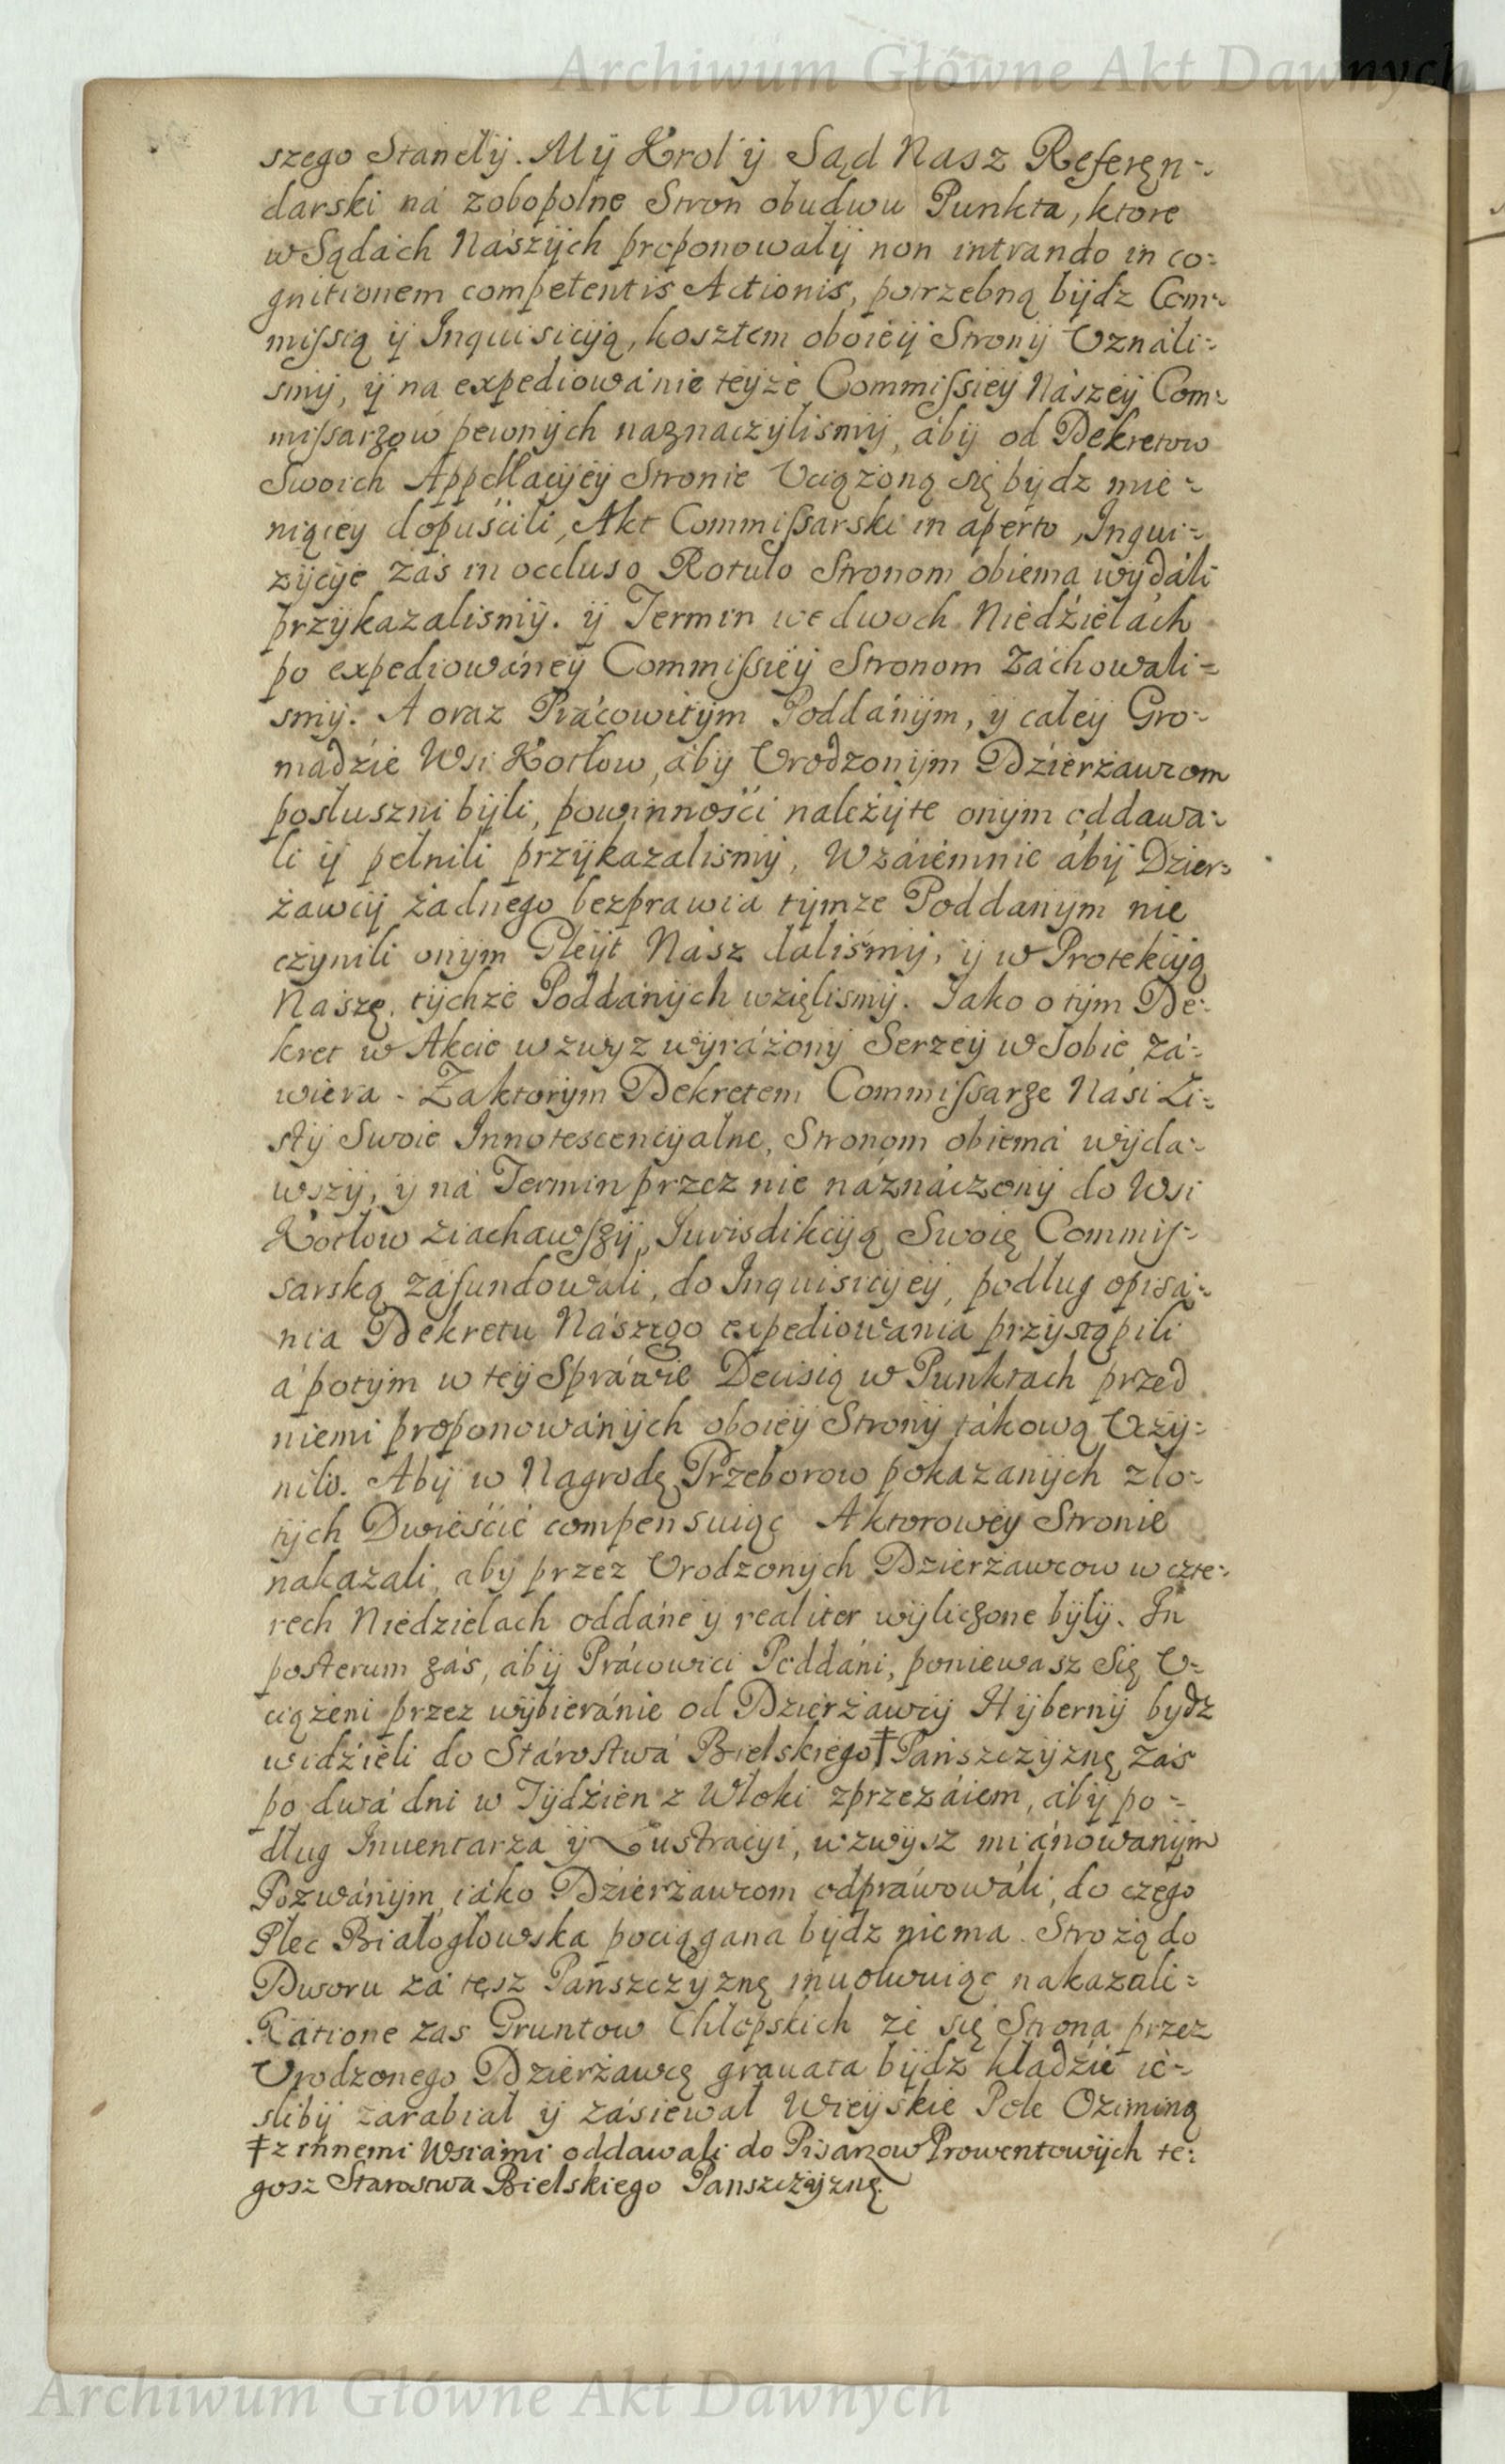 Archiwum Główne Akt Dawnych
szego Stanęły. My Krol y Sąd Nasz Referęn-
darski ná zobopolne Stron obudwu Punkta, ktore
w Sądách Nászych proponowały non intrando in co-
gnitionem competentis Actionis, potrzebną bydz Com-
missią y Inquisicyą, kosztem oboiey Strony Uználi-
smy, y na expediowánie teyże Commissiey Nászey Com-
missarzow pewnych naznaczylismy, áby od Dekretow
Swoich Appellacyey Stronie Uciążoną się bydz mie-
niącey dopuścili, Akt Commissarski in aperto, Inqui-
zycye zás in occluso Rotulo Stronom obiema wydáli
przykazalismy. y Termin we dwoch Niedzielách
po expediowáney Commissiey Stronom Záchowali-
smy. A oraz Prácowitym Poddánym, y całey Gro-
mádzie Wsi Kotłow, áby Urodzonym Dzierżawcom
posłuszni byli, powinności należyte onym oddawa-
li y pełnili przykazalismy, Wzáiemnie áby Dzier-
żawcy żadnego bezprawia tymże Poddanym nie
czynili onym Gleyt Nász daliśmy, y w Protekcyą
Naszę, tychże Poddánych wzięlismy. Jako o tym De-
kret w Akcie wzwyz wyráżony Serzey w Sobie zá-
wiera. Zaktorym Dekretem Commissarze Nási Li-
sty Swoie Innotescencyalne, Stronom obiemá wyda-
wszy, y ná Termin przez nie náznáczony do Wsi
Kotłow ziachawszy, Jurisdikcyą Swoię Commis-
sarską záfundowali, do Inquisicyey, podług opisá-
nia Dekretu Nászego expediowania przystąpili
á potym w tey Spráwie Decisią w Punktach przed
niemi proponowánych oboiey Strony tákową Uczy-
nili. Aby w Nagrodę Przeborow pokazanych zło-
tych Dwieście compensuiąc Aktorowey Stronie
nakazali, aby przez Urodzonych Dzierżawcow w czte-
rech Niedzielach oddáne y realiter wyliczone były. In
posterum zás, áby Prácowici Poddáni, poniewasz Się U-
ciążeni przez wybieránie od Dzierżawcy Hyberny bydz
widzieli do Stárostwá Bielskiego † Pańszczyznę zás
po dwá dni w Tydzień z Włoki zprzezáiem, áby po-
dług Inuentarza y Lustracyi, wzwysz miánowanym
Pozwánym, iáko Dzierżawcom odpráwowáli, do czego
Płec Białogłowska pociągana bydz niema. Strożą do
Dworu zá tęsz Pańszczyznę inuoluuiąc nakazali-
Ratione zas Gruntow Chłopskich że się Strona przez
Urodzonego Dzierżawcę grauata bydz kładzie ie-
sliby zarabiał y zásiewał Wieyskie Pole Oziminą
† z innemi Wsiámi oddawali do Pisarzow Prowentowych te-
gosz Starostwa Bielskiego Panszczyznę
Archiwum Główne Akt Dawnych